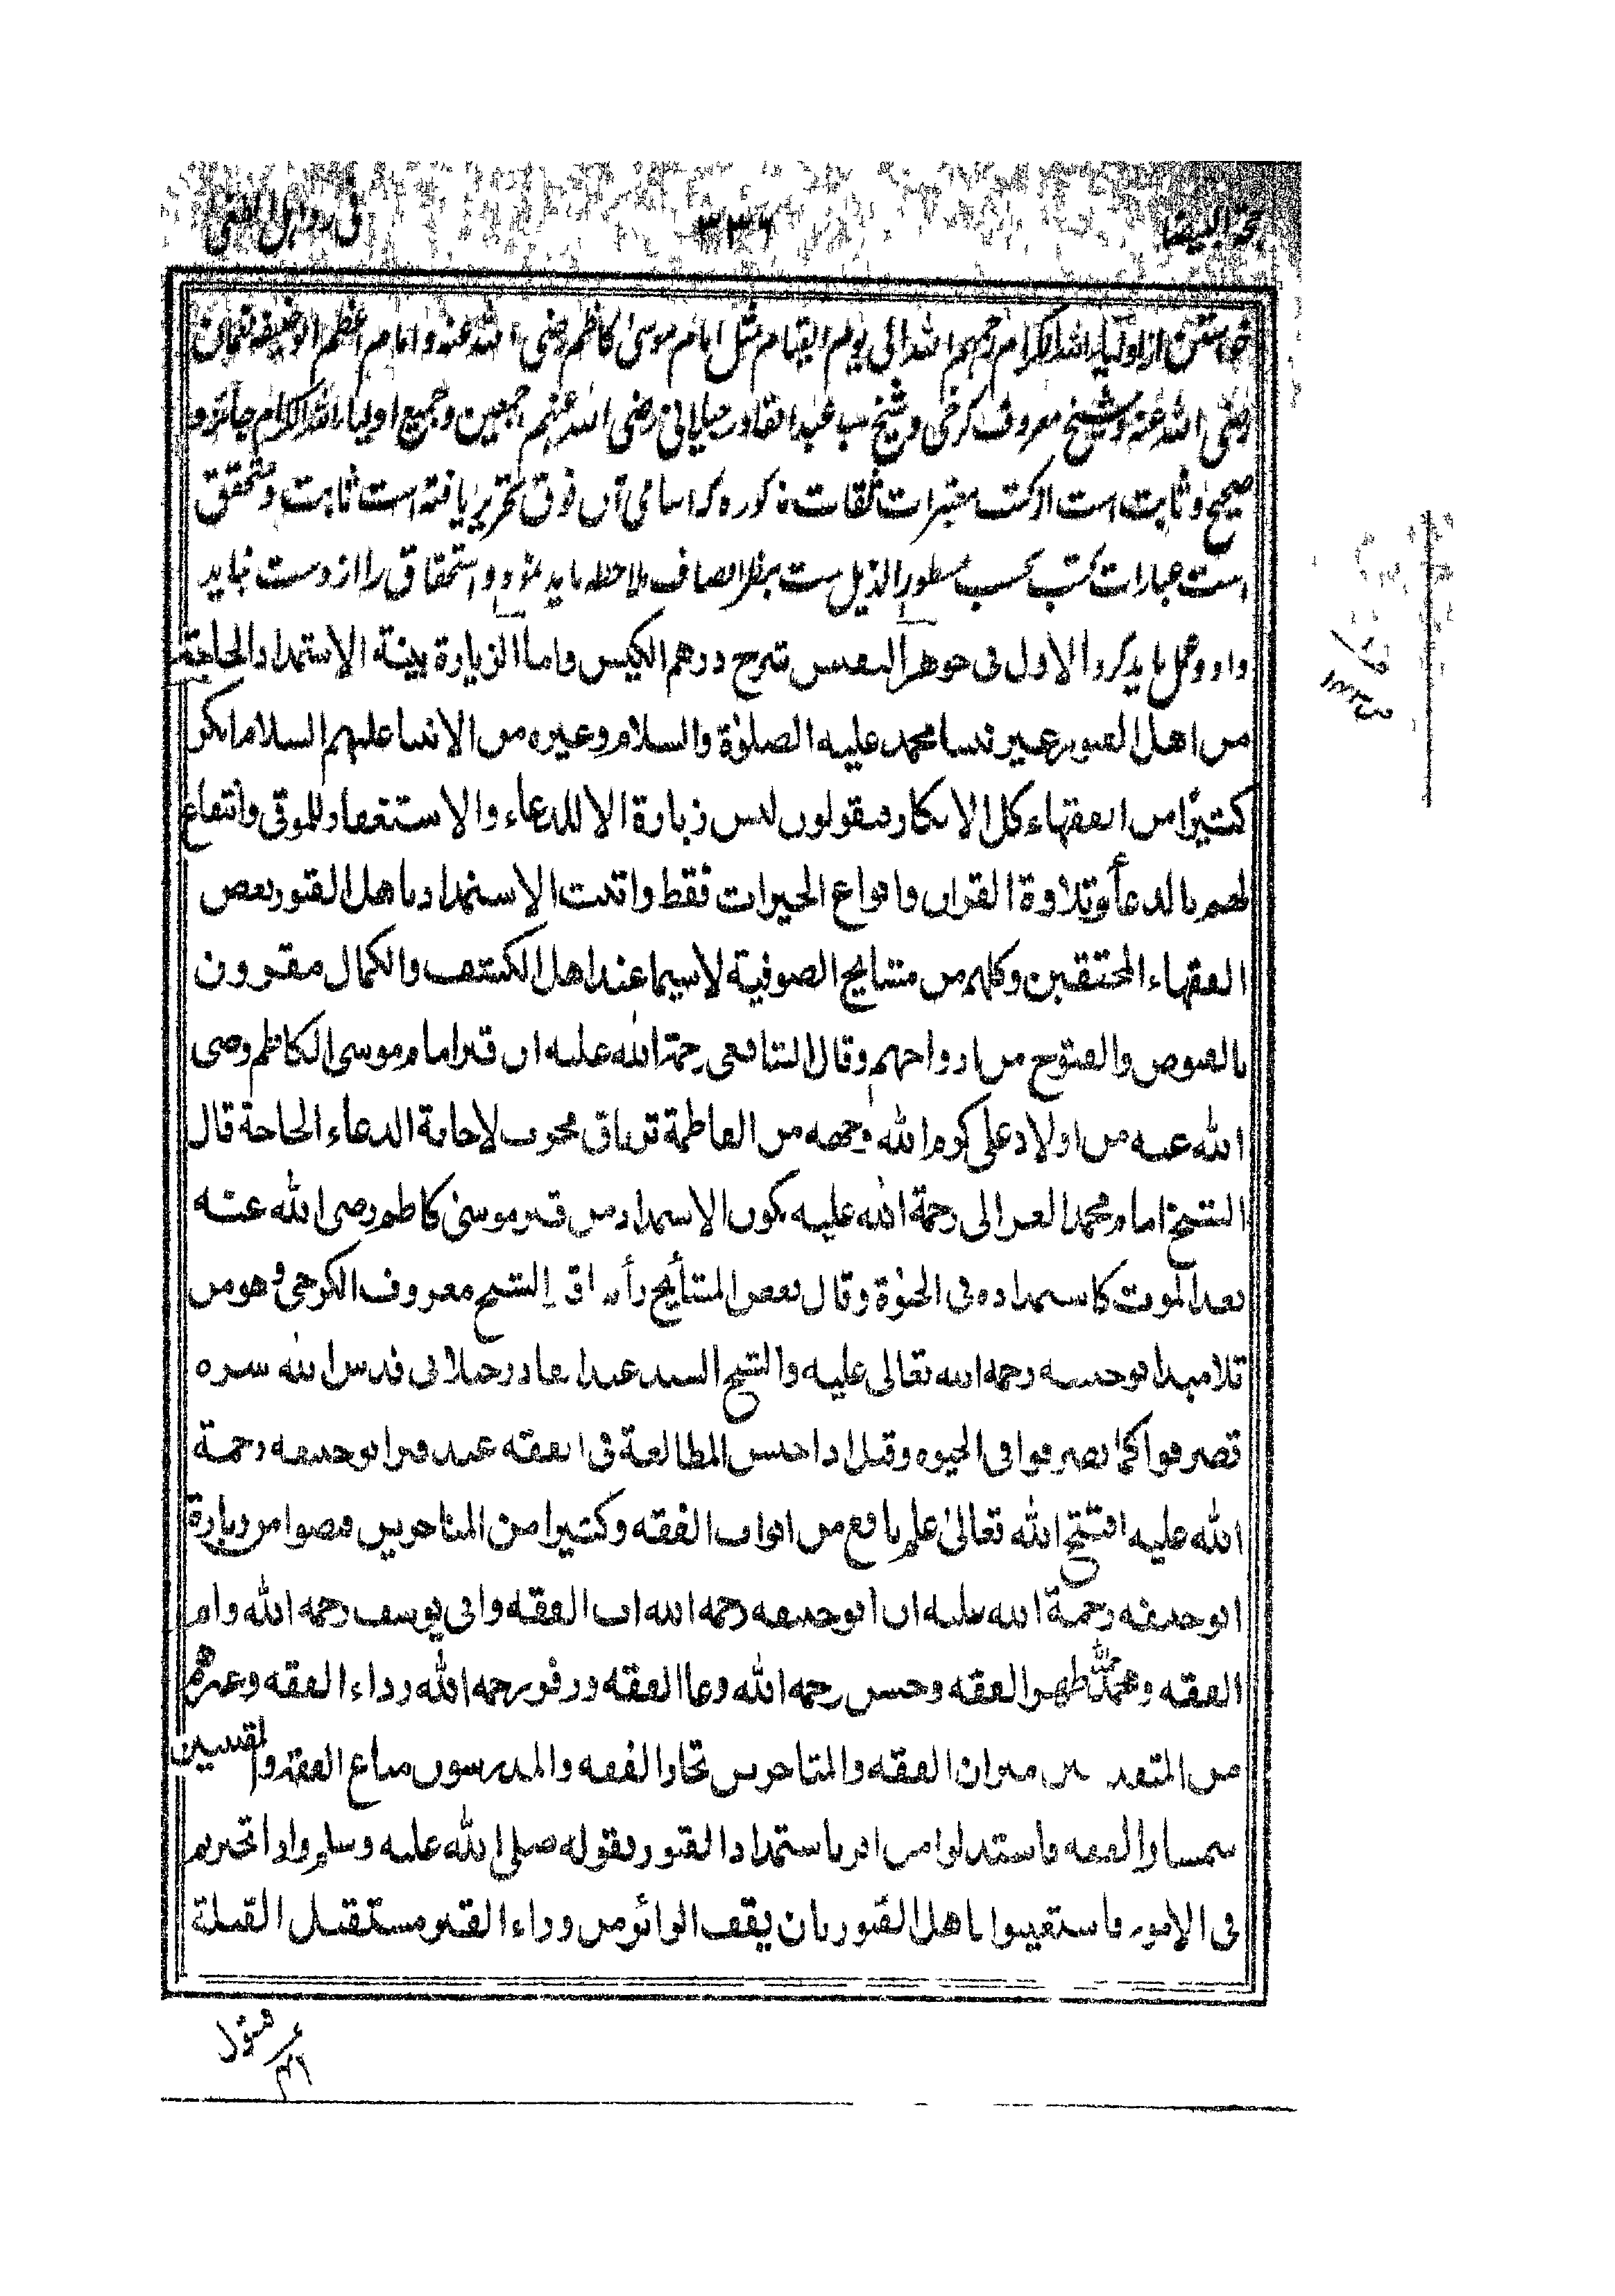 ٣٣٦
خواستن از اولیاء اللہ الکرام رحمہم اللہ الی یوم القیام مثل امام موسیٰ کاظم رضی اللہ عنہ و امام اعظم ابوحنیفہ نعمان
رضی اللہ عنہ و شیخ معروف کرخی و شیخ عبد القادر جیلانی رضی اللہ عنہم اجمعین و جمیع اولیاء اللہ الکرام جائز و
صحیح و ثابت است از کتب معتبرات ثقات مذکورہ کہ اسامی آں فوق تحریر یافتہ است ثابت و متحقق
است عبارات کتب بحسب مسطور الذیل ست بنظر انصاف ملاحظہ باید نمود و استحقاق را از دست نباید
داد و عمل باید کرد الاول فی جوهر النفیس شرح درهم الکیس واما الزیارة بینة الاستمداد الحاجة
من اهل القبور غیر نبینا محمد علیه الصلوٰة والسلام وغیره من الانبیا علیهم السلام
کثیرًا من الفقهاء کل الانکار ویقولون لیس زیارة الا للدعاء والاستغفار للموتی وانتفاع
لهم بالدعأ وتلاوة القران وانواع الخیرات فقط واثبت الاستمداد باهل القبور بعض
الفقهاء المحققین وکلهم من مشایخ الصوفیة لاسیما عند اهل الکشف والکمال مقرون
بالفیوض والفتوح من ارواحهم وقال الشافعی رحمة الله علیه ان قبر امام موسی الکاظم رضی
الله عنه من اولاد علی کرم الله وجهه من الفاطمة تریاق مجرب لاجابة الدعاء الحاجة قال
الشیخ امام محمد الغزالی رحمة الله علیه یکون الاستمداد من قبر موسیٰ کاظم رضی الله عنه
بعد الموت کاستمداده فی الحیٰوة وقال بعض المشأیخ الشیخ معروف الکرخی وهو من
تلامیذ ابوحنیفه رحمه الله تعالی علیه والشیخ السید عبد القادر جیلانی قدس الله سره
تصرفوا کما تصرفوا فی الحیوه وقیل اذا جلس المطالعة فی الفقه عند قبر ابوحنیفه رحمة
الله علیه افتتح الله تعالیٰ علم نافع من ابواب الفقه وکثیرا من المتاخرین من زیارة
ابوحنیفه رحمة الله علیه ان ابوحنیفه رحمه الله اب الفقه وابی یوسف رحمه الله وام
الفقه ومحمد الفقه وحسن رحمه الله الفقه وزفر رحمه الله رداء الفقه وغیرهم
من المتقدمین میزان الفقه والمتاخرین تجار الفقه والمدرسون متاع الفقه والمقتبسین
الفقه فاستدلوا من امر باستمداد القبور بقوله صلی الله علیه وسلم واذا تحیرتم
فی الامور فاستعینوا باهل القبور بان یقف الزائر من وراء القبر مستقبل القبلة